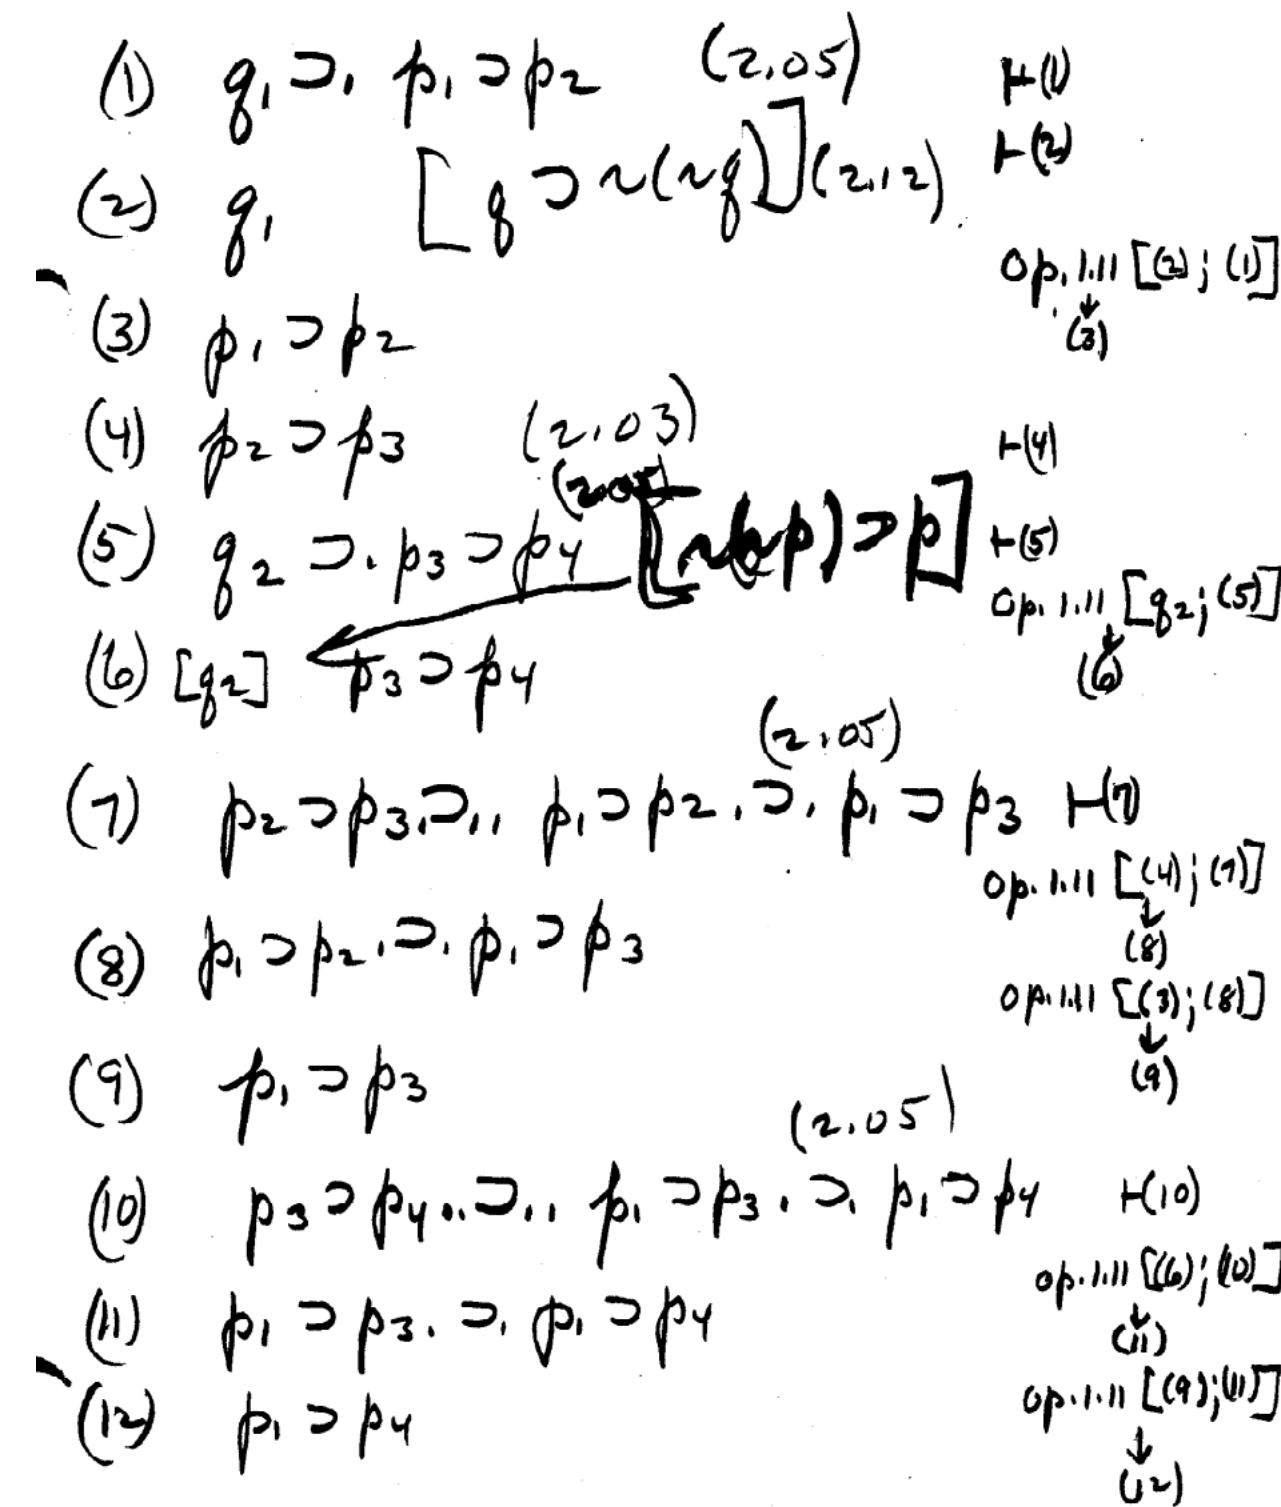 (1) q₁ ⊃. p₁ ⊃ p₂ (2.05) ⊢(1)
(2) q₁ [q ⊃ ~(~q)] (2.12) ⊢(2)
Op. 1.11 [(2); (1)]
↓
(3) p₁ ⊃ p₂ (3)
(4) p₂ ⊃ p₃ (2.03) ⊢(4)
(5) q₂ ⊃. p₃ ⊃ p₄ [~(~p) ⊃ p] ⊢(5)
Op. 1.11 [q₂; (5)]
↓
(6) [q₂] p₃ ⊃ p₄ (6)
(2.05)
(7) p₂ ⊃ p₃.⊃.. p₁ ⊃ p₂ .⊃. p₁ ⊃ p₃ ⊢(7)
Op. 1.11 [(4); (7)]
↓
(8) p₁ ⊃ p₂ .⊃. p₁ ⊃ p₃ (8)
Op. 1.11 [(3); (8)]
↓
(9) p₁ ⊃ p₃ (9)
(2.05)
(10) p₃ ⊃ p₄..⊃.. p₁ ⊃ p₃ .⊃. p₁ ⊃ p₄ ⊢(10)
Op. 1.11 [(6); (10)]
↓
(11) p₁ ⊃ p₃. ⊃. p₁ ⊃ p₄ (11)
Op. 1.11 [(9); (11)]
↓
(12) p₁ ⊃ p₄ (12)